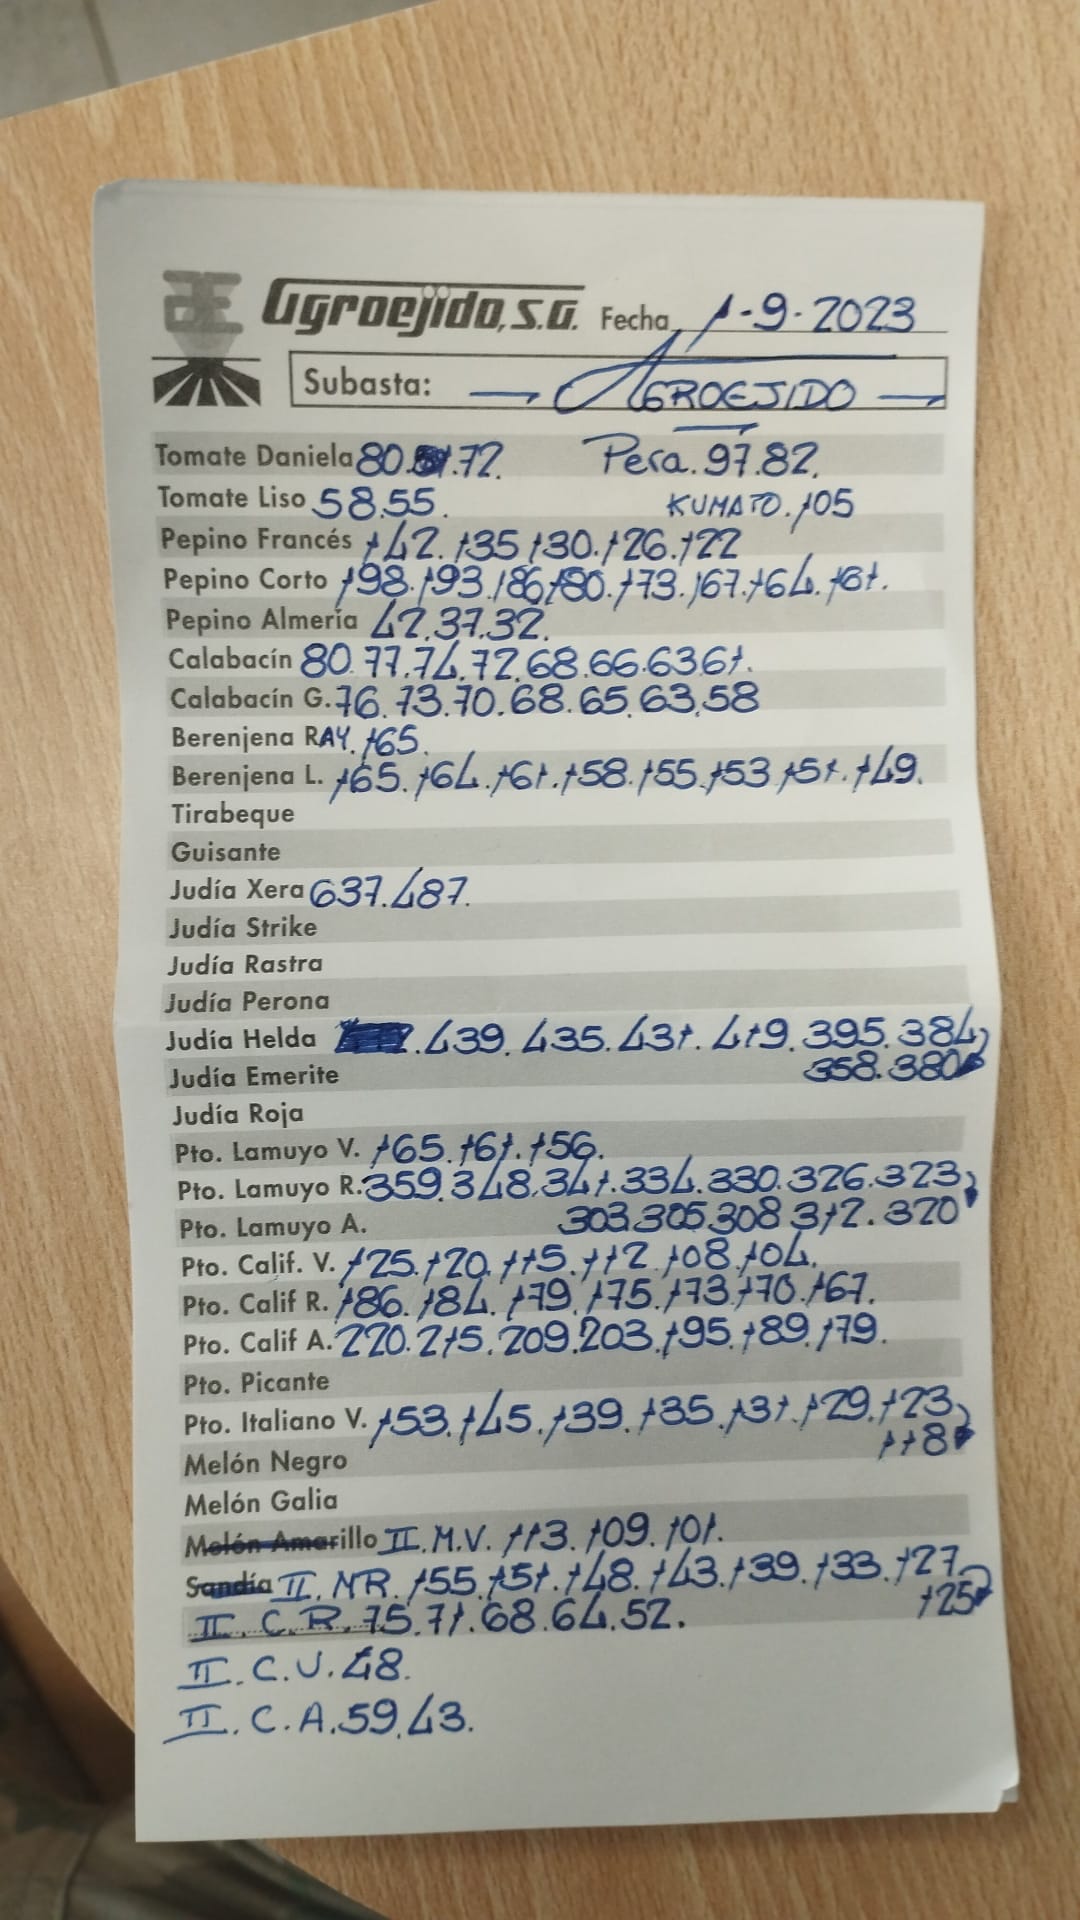 Agroejido, S.A. Fecha 1-9-2023
Subasta: AGROEJIDO
Tomate Daniela 80. 72. Pera. 97.82.
Tomate Liso 58.55. KUMATO. 105
Pepino Francés 142. 135 130. 126. 122
Pepino Corto 198. 193. 186 180. 173. 167. 164. 161.
Pepino Almería 42.37.32.
Calabacín 80.77.74.72.68.66.63.61.
Calabacín G. 76.73.70.68.65.63.58
Berenjena RAY. 165.
Berenjena L. 165. 164. 161. 158. 155. 153 151. 149.
Tirabeque
Guisante
Judía Xera 637.487.
Judía Strike
Judía Rastra
Judía Perona
Judía Helda .439. 435. 431. 419. 395. 384
Judía Emerite 358.380
Judía Roja
Pto. Lamuyo V. 165. 161. 156.
Pto. Lamuyo R. 359.348.341.334.330.326.323
Pto. Lamuyo A. 303.305.308 312. 320
Pto. Calif. V. 125. 120. 115. 112 108. 104.
Pto. Calif R. 186. 184. 179. 175. 173. 170. 167.
Pto. Calif A. 220. 215. 209. 203. 195. 189. 179.
Pto. Picante
Pto. Italiano V. 153. 145. 139. 135. 131. 129. 123
118
Melón Negro
Melón Galia
Melón Amarillo II. M.V. 113. 109. 101.
Sandía II. MR. 155. 151. 148. 143. 139. 133. 127
125
II. C. R. 75.71.68.64.52.
II. C.V. 48.
II. C. A. 59.43.